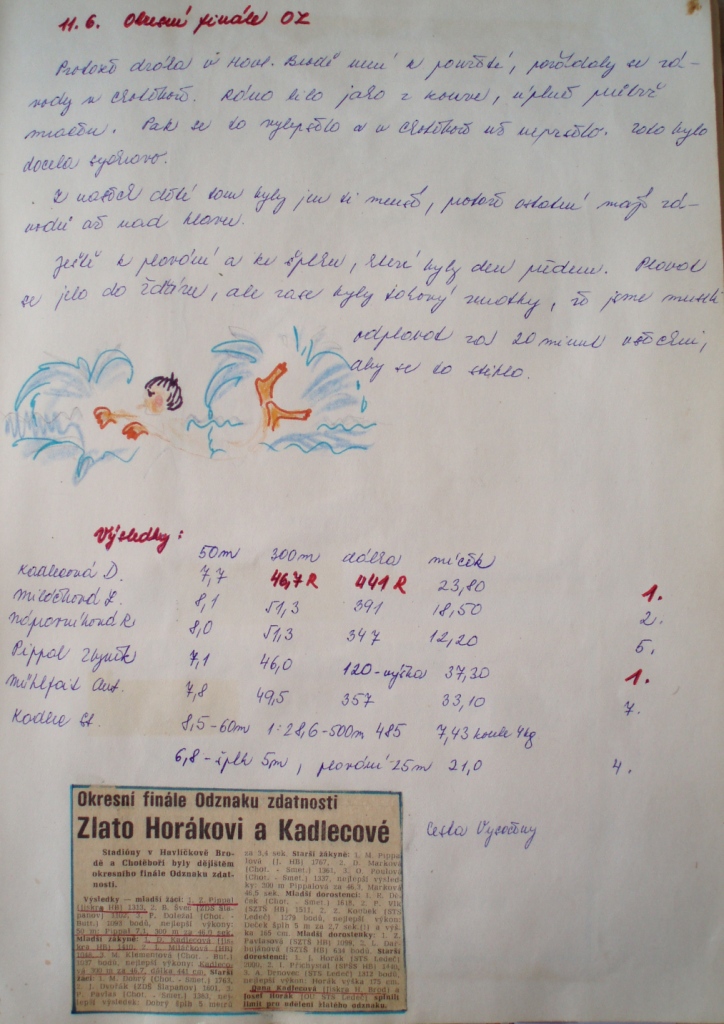 11.6. Okresní finále OZ
Protože dráha v Havl. Brodě není k použití, pořádaly se zá-
vody v Chotěboři. Ráno lilo jako z konve, úplně
Pak se to vylepšilo a v Chotěboři už nepršelo. Teplo bylo
docela
Z našich dětí tam byly jen ti menší, protože ostatní mají zá-
vodů až nad hlavu.
Ještě k plavání a ke šplhu, které byly den předem. Plavat
se jelo do Žďáru, ale zase byly takový zmatky, že jsme museli
odplavat za 20 minut všichni,
aby se to stihlo.
Výsledky:
50m 300m dálka míček
Kadlecová D. 7,7 46,7 R 441 R 23,80 1.
Miláčková L. 8,1 51,3 391 18,50 2.
Náprstníková R 8,0 51,3 347 12,20 5.
Pippal Zbyněk 7,1 46,0 120-výška 37,30 1.
Mühlfait Ant. 7,8 49,5 357 33,10 7.
Kadlec St. 8,5-60m 1:28,6-500m 485 7,43 koule 4kg
6,8-šplh 5m, plavání 25m 21,0 4.
Okresní finále Odznaku zdatnosti
Zlato Horákovi a Kadlecové
Cesta Vysočiny
Stadióny v Havlíčkově Bro-
dě a Chotěboři byly dějištěm
okresního finále Odznaku zdat-
nosti.
Výsledky — mladší žáci: 1. Z. Pippal
(Jiskra HB) 1312, 2. B. Švec (ZDŠ Šla-
panov) 3. P. Doležal (Chot. -
But.) 1093 bodů, nejlepší výkony:
50 m: Pippal 7,1, 300 m za 46,0 sek.
Mladší žákyně: 1. D. Kadlecová (Jis-
kra HB) 1410, 2. L. Miláčková (HB)
3. M. Klementová (Chot. -
bodů, nejlepší výkony: Kadleco-
vá 300 m za 46,7, dálka 441 cm. Starší
žáci: 1. M. Dobrý (Chot. - Smet.) 1763,
2. J. Dvořák (ZDŠ Šlapanov) 1601, 3.
P. Pavlas (Chot. - Smet.) nej-
lepší výsledek: Dobrý šplh 5 metrů
za 3,4 sek. Starší žákyně: 1. M. Pippa-
lová (J. HB) 1767, 2. D. Marková
(Chot. - Smet.) 1361, 3. O. Paulová
(Chot. - Smet.) 1337, nejlepší výsled-
ky: 300 m Pippalová za 46,3, Marková
46,5 sek. Mladší dorostenci: 1. R. Do-
ček (Chot. - Smet.) 2. P. Vlk
(STS Ledeč) 2. Z. Kostlek (STS
Ledeč) 1279 bodů, nejlepší výkon:
Doček šplh 5 m za 2,7 sek. a vý-
ška 165 cm. Mladší dorostenky: 1. Z.
Pavlasová (SZTŠ HB) 1099, 2. L. Dar-
bujánová (SZTŠ HB) 634 bodů. Starší
dorostenci: 1. J. Horák (STS Ledeč)
2. J. Přichystal (SPŠS HB)
3. A. Drnovec (STS Ledeč) 1312 bodů,
nejlepší výkon: Horák výška 175 cm.
Dana Kadlecová (Jiskra H. Brod) a
Josef Horák (OU STS Ledeč) splnili
limit pro udělení zlatého odznaku.